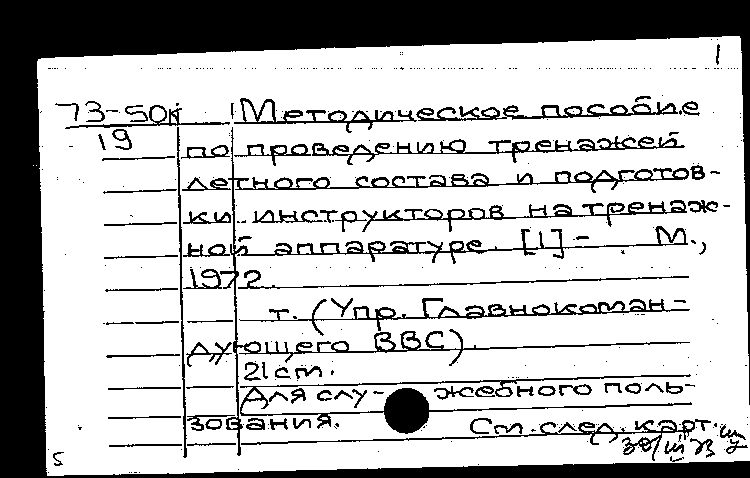 1
73-50к Методическое пособие
19
по проведению тренажей
летного состава и подготов-
ки инструкторов на тренаж-
ной аппаратуре. [1]- . М.,
1972.
т. (Упр. Главнокоман-
дующего ВВС).
21 см.
Для слу- жебного поль-
зования. См. след. карт.
5